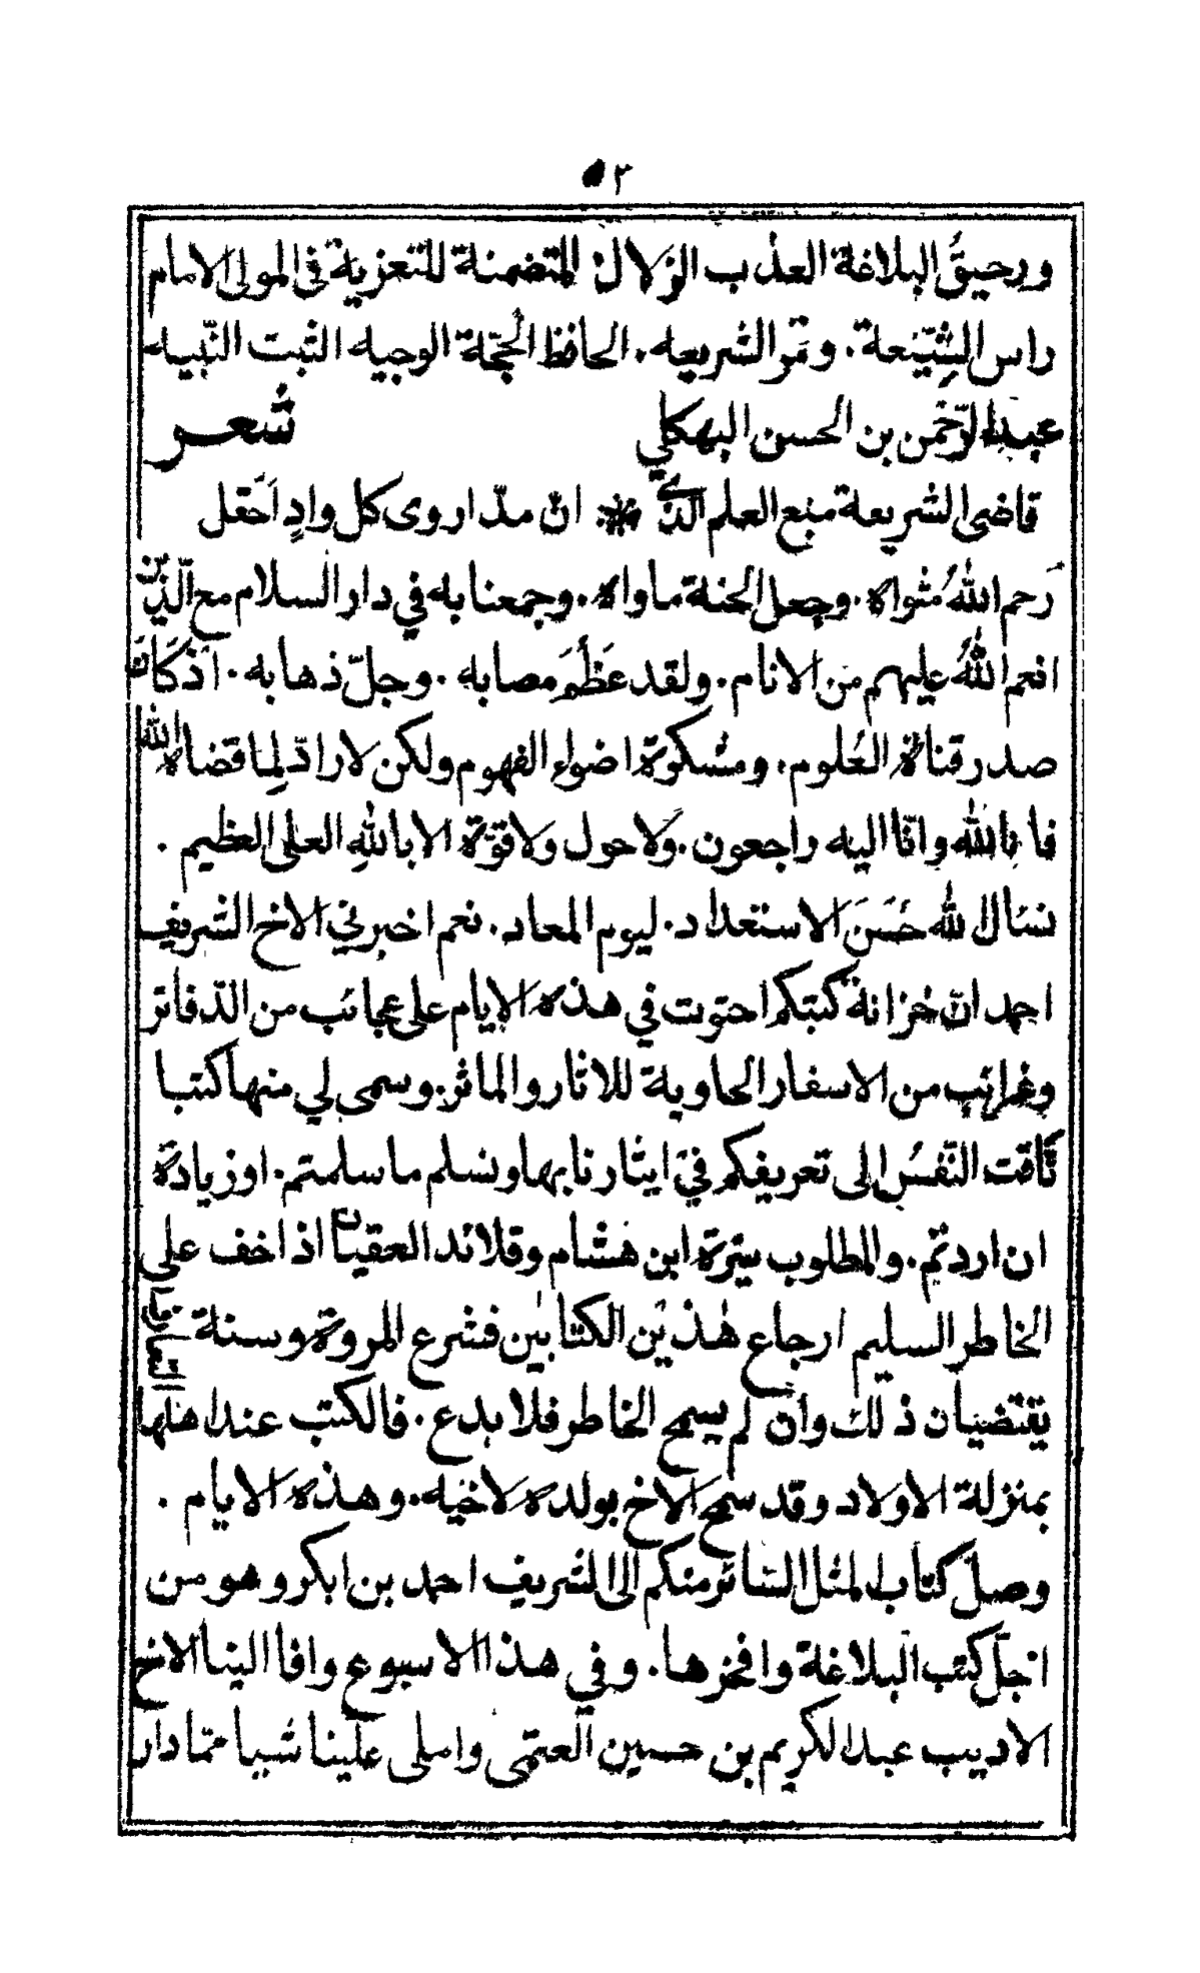 ٥٣
ورحيقُ البلاغة العذب الزلال المتضمنة للتعزية في المولى الامام
راس الشيعة. وقمر الشريعه. الحافظ الحجّة الوجيه الثبت النّبيه
عبدالرّحمن بن الحسن البهكلي شعر
قاضى الشريعة منبع العلم الذي ان مدّ اروى كل وادٍ اَمحَل
رَحم اللهُ مُثواه. وجعل الجنة ماواه. وجمعنا به في دار السلام مع الّذين
انعم اللهُ عليهم من الانام. ولقد عَظُمَ مصابه. وجلّ ذهابه. اذ كَانَ
صدر قناة العُلوم. ومشكوة اضواء الفهوم ولكن لا رادّ لِما قضاه الله
فانا لله وانّا اليه راجعون. ولا حول ولا قوّة الا باللهِ العلى العظيم.
نسال الله حُسَنَ الاستعداد. ليوم المعاد. نعم اخبرني الاخ الشريف
احمد انّ خزانة كتبكم احتوت في هذه الايام على عجائب من الدّفاتر
وغرائب من الاسفار الحاوية للاثار والماثر. وسمى لي منها كتبا
تَاقت النّفسُ الى تعريفكم في ايثارنا بها ونسلم ما سلمتم. او زيادة
ان اردتم. والمطلوب سيرة ابن هشام وقلائد العقيان اذا خف على
الخاطر السليم ارجاع هٰذين الكتابين فشرع المروة وسنة التعارف
يقتضيان ذلك وان لم يسمح الخاطر فلا بدع. فالكتب عند اهلها
بمنزلة الاولاد وقد سمح الاخ بولده لاخيه. وهذه الايام.
وصل كتاب المثل السّائر منكم الى الشريف احمد بن ابكر وهو من
اجلّ كتب البلاغة وافخرها. وفي هذا الاسبوع وافا الينا الاخ
الاديب عبد الكريم بن حسين العتمى واملى علينا شيا ممّا دار